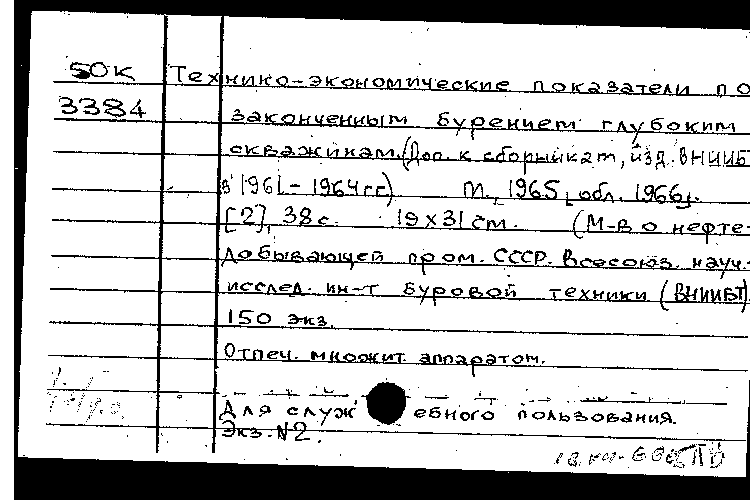 50К Технико-экономические показатели по
3384 законченным бурением глубоким
скважинам. (Доп. к сборникам, изд. ВНИИБТ
в 1961-1964 гг.) М., 1965, [обл. 1966].
[2], 38 с. 19х31 см. (М-в о нефте-
добывающей пром. СССР. Всесоюз. науч.-
исслед. ин-т буровой техники (ВНИИБТ)
150 экз.
Отпеч. множит. аппаратом.
Для служебного пользования.
Экз. №2.